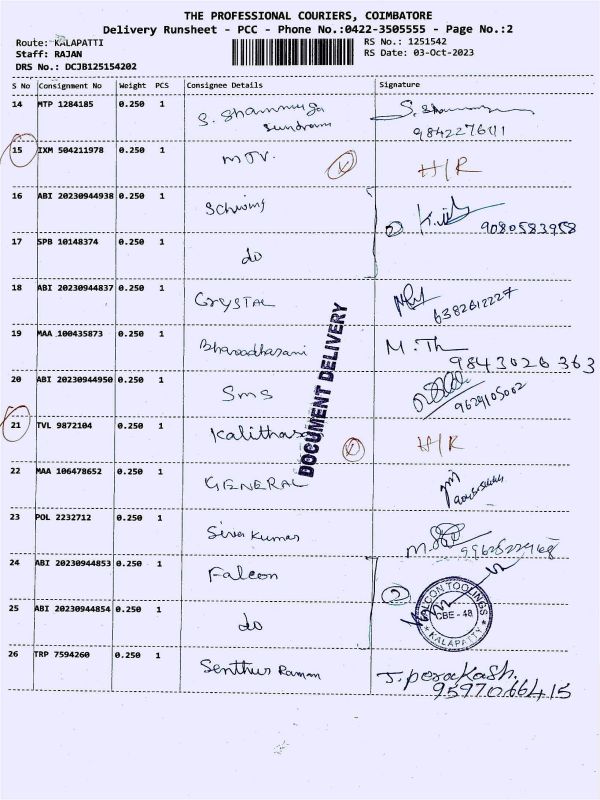 THE PROFESSIONAL COURIERS, COIMBATORE
Delivery Runsheet - PCC - Phone No.:0422-3505555 - Page No.:2
Route: KALAPATTI
Staff: RAJAN
DRS No.: DCJB125154202
RS No.: 1251542
RS Date: 03-Oct-2023
S No Consignment No Weight PCS Consignee Details Signature
14 MTP 1284185 0.250 1 S. Shanmuga
Sundram
9842276111
15 IXM 504211978 0.250 1 MTV. H/R
16 ABI 20230944938 0.250 1 Schwing
9080583958
17 SPB 10148374 0.250 1 do
18 ABI 20230944837 0.250 1 Crystal
6382612227
19 MAA 100435873 0.250 1 M. Th
9843026363
20 ABI 20230944950 0.250 1 Sms
9629105002
DOCUMENT DELIVERY
21 TVL 9872104 0.250 1 Kalithasa H/R
22 MAA 106478652 0.250 1 GENERAL
23 POL 2232712 0.250 1 Siva Kumar
24 ABI 20230944853 0.250 1 Falcon
2
FALCON TOOLINGS
CBE - 48
KALAPATTY
25 ABI 20230944854 0.250 1 do
26 TRP 7594260 0.250 1 Senthur Raman J. perakash.
9597066415